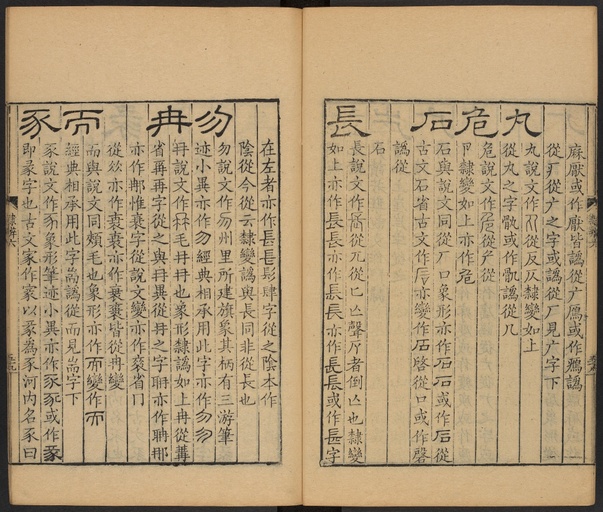 麻厭或作厭皆譌從广鴈或作鴈譌
從厂從广之字或譌從厂見广字下
丸
丸說文作从反仄隸變如上
從丸之字骩或作骫譌從几
危
危說文作从厃從
卪隸變如上亦作危
石
石與說文同從厂口象形亦作石石或作石從
古文石省古文作亦變作石啓從口或作磬
譌從
石
長
長說文作從兀從匕亾聲斤者倒亾也隸變
如上亦作長長亦作長長亦作長長或作長字
在左者亦作長長髟肆字從之陰本作
陰從今從云隸變譌與長同非從長也
勿
勿說文作勿州里所建旗象其柄有三游筆
迹小異亦作勿經典相承用此字亦作勿勿
冉
冄說文作毛冄冄也象形隸譌如上冉從冓
省再再字從之與冄異從冄之字耼亦作聃那
亦作惟衰字從說文變亦作衰省冂
從㸚亦作衰衰亦作衰衰皆從冉變
而
而與說文同頰毛也象形亦作而變作而
經典相承用此字耑譌從而見耑字下
豕
豕說文作豕象形筆迹小異亦作豕豕或作豖
即彖字也古文家作以為豕河内名豕曰